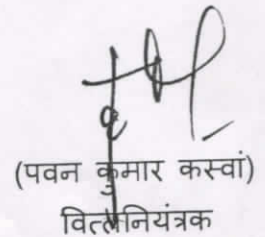 (पवन कुमार कस्वां)
वित्त नियंत्रक